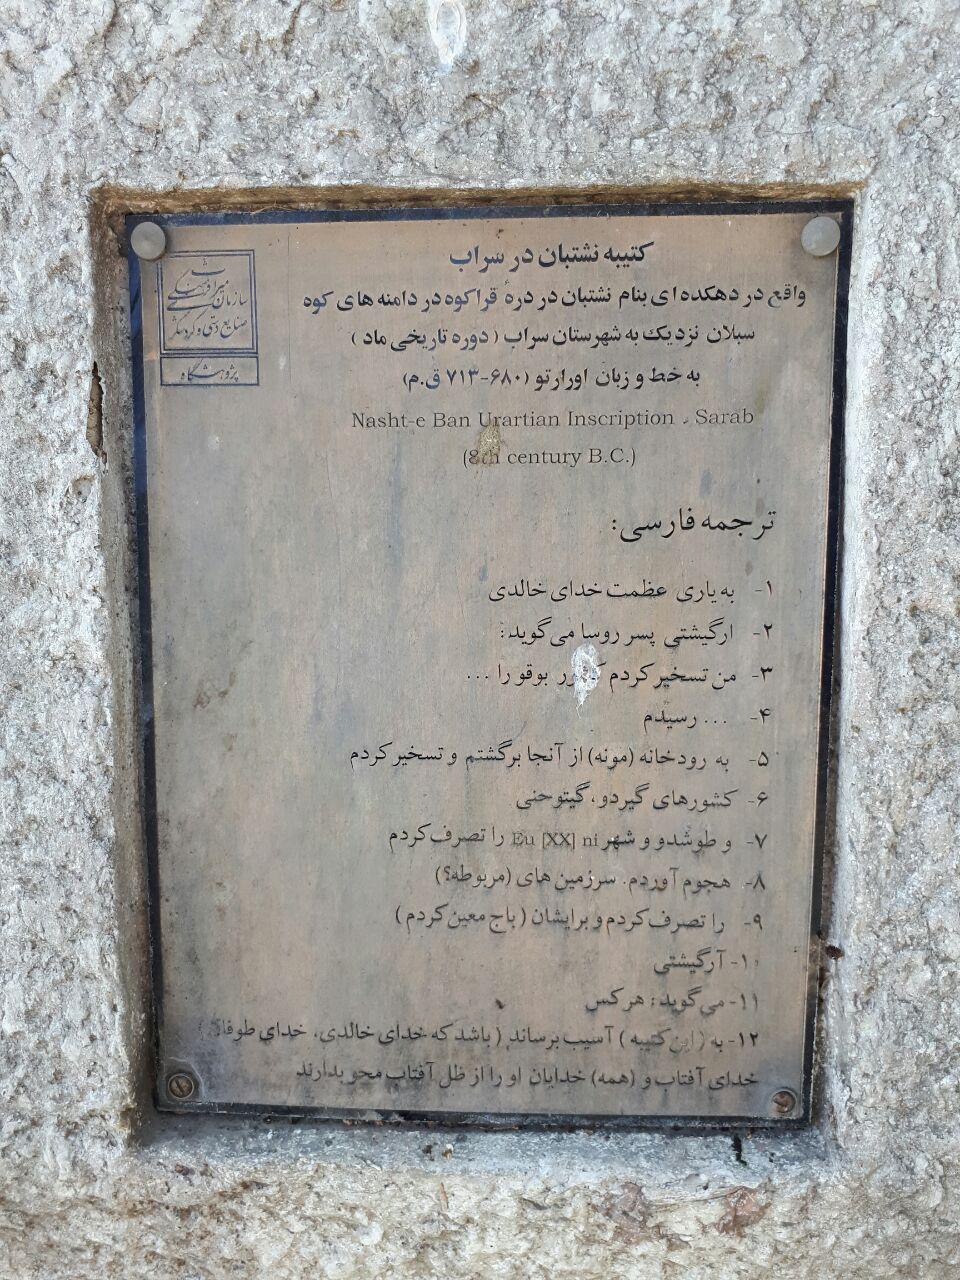 کتیبه نشتبان در سراب
واقع در دهکده ای بنام نشتبان در درهٔ قراکوه در دامنه های کوه
سبلان نزدیک به شهرستان سراب (دوره تاریخی ماد)
به خط و زبان اورارتو (۶۸۰-۷۱۳ ق.م)
Nasht-e Ban Urartian Inscription . Sarab
(8th century B.C.)
سازمان میراث فرهنگی
صنایع دستی و گردشگری
پژوهشگاه
ترجمه فارسی:
۱- به یاری عظمت خدای خالدی
۲- ارگیشتی پسر روسا می‌گوید:
۳- من تسخیر کردم کشور بوقو را ...
۴- ... رسیدم
۵- به رودخانه (مونه) از آنجا برگشتم و تسخیر کردم
۶- کشورهای گیردو، گیتوحنی
۷- و طوشدو و شهر Eu [XX] ni را تصرف کردم
۸- هجوم آوردم. سرزمین های (مربوطه؟)
۹- را تصرف کردم و برایشان (باج معین کردم)
۱۰- آرگیشتی
۱۱- می‌گوید: هرکس
۱۲- به (این کتیبه) آسیب برساند (باشد که خدای خالدی، خدای طوفان،
خدای آفتاب و (همه) خدایان او را از ظل آفتاب محو بدارند